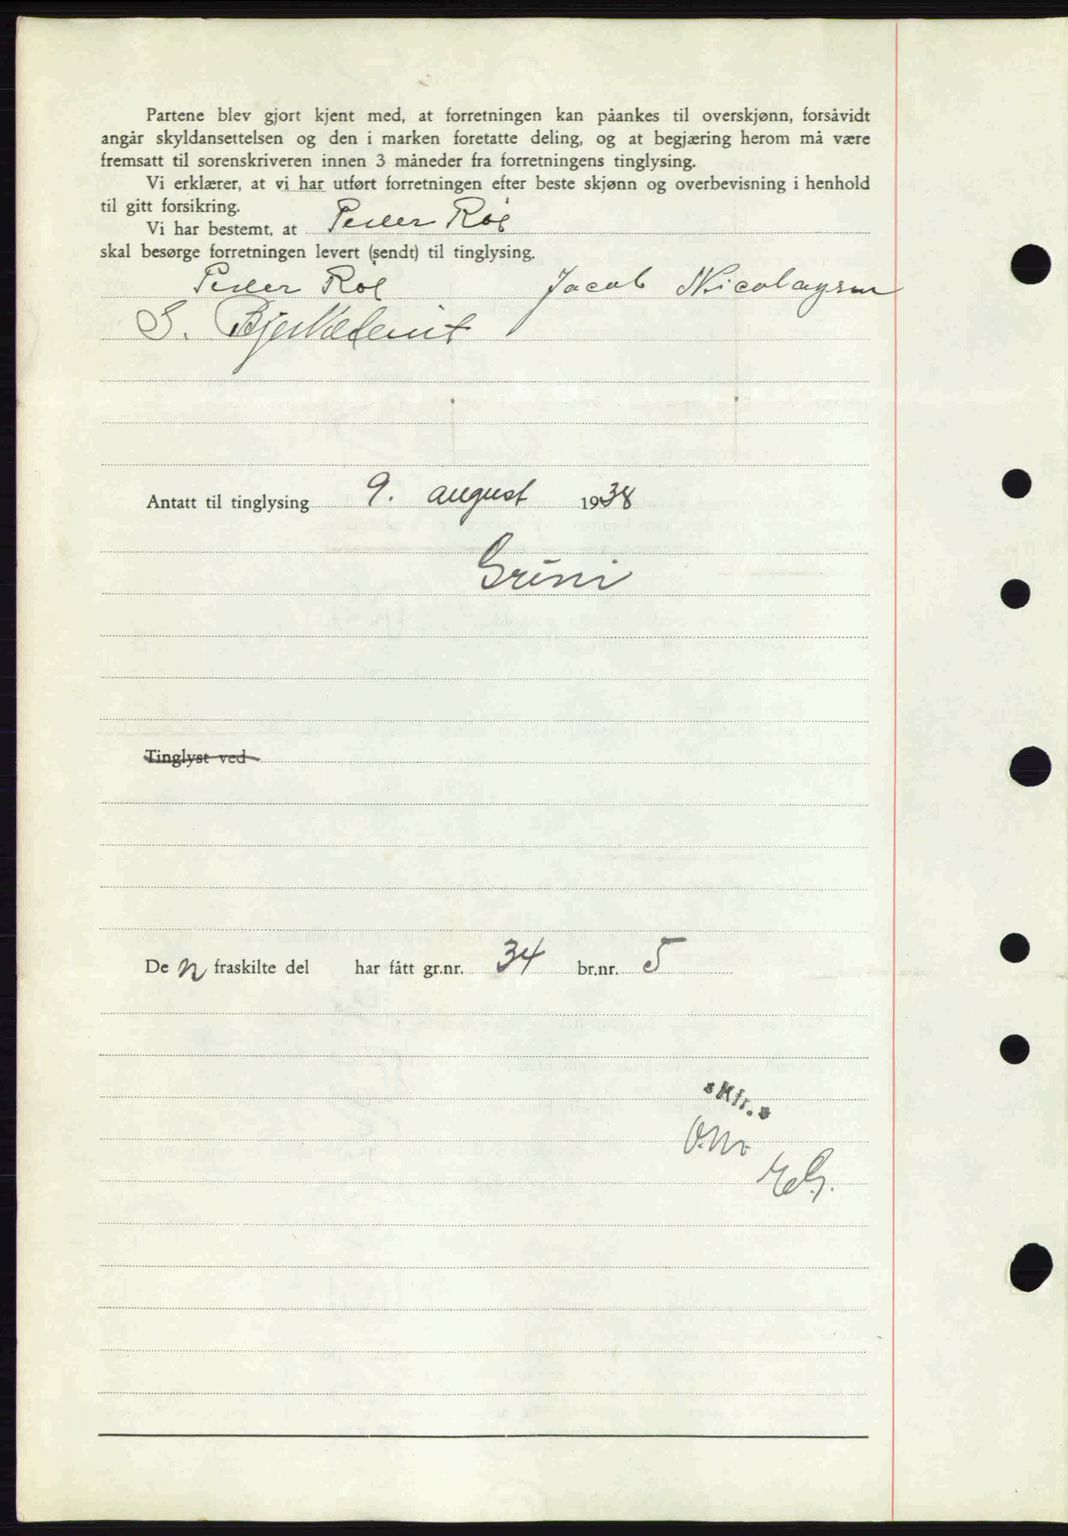 Partene blev gjort kjent med, at forretningen kan påankes til overskjønn, forsåvidt
angår skyldansettelsen og den i marken foretatte deling, og at begjæring herom må være
fremsatt til sorenskriveren innen 3 måneder fra forretningens tinglysing.
Vi erklærer, at vi har utført forretningen efter beste skjønn og overbevisning i henhold
til gitt forsikring.
Vi har bestemt, at Peder Röe
skal besørge forretningen levert (sendt) til tinglysing.
Peder Röe Jacob Nicolaysen
S.
Antatt til tinglysing 9. august 1938
Grini
Tinglyst ved
De n fraskilte del har fått gr.nr. 34 br.nr. 5
*Kfr.*